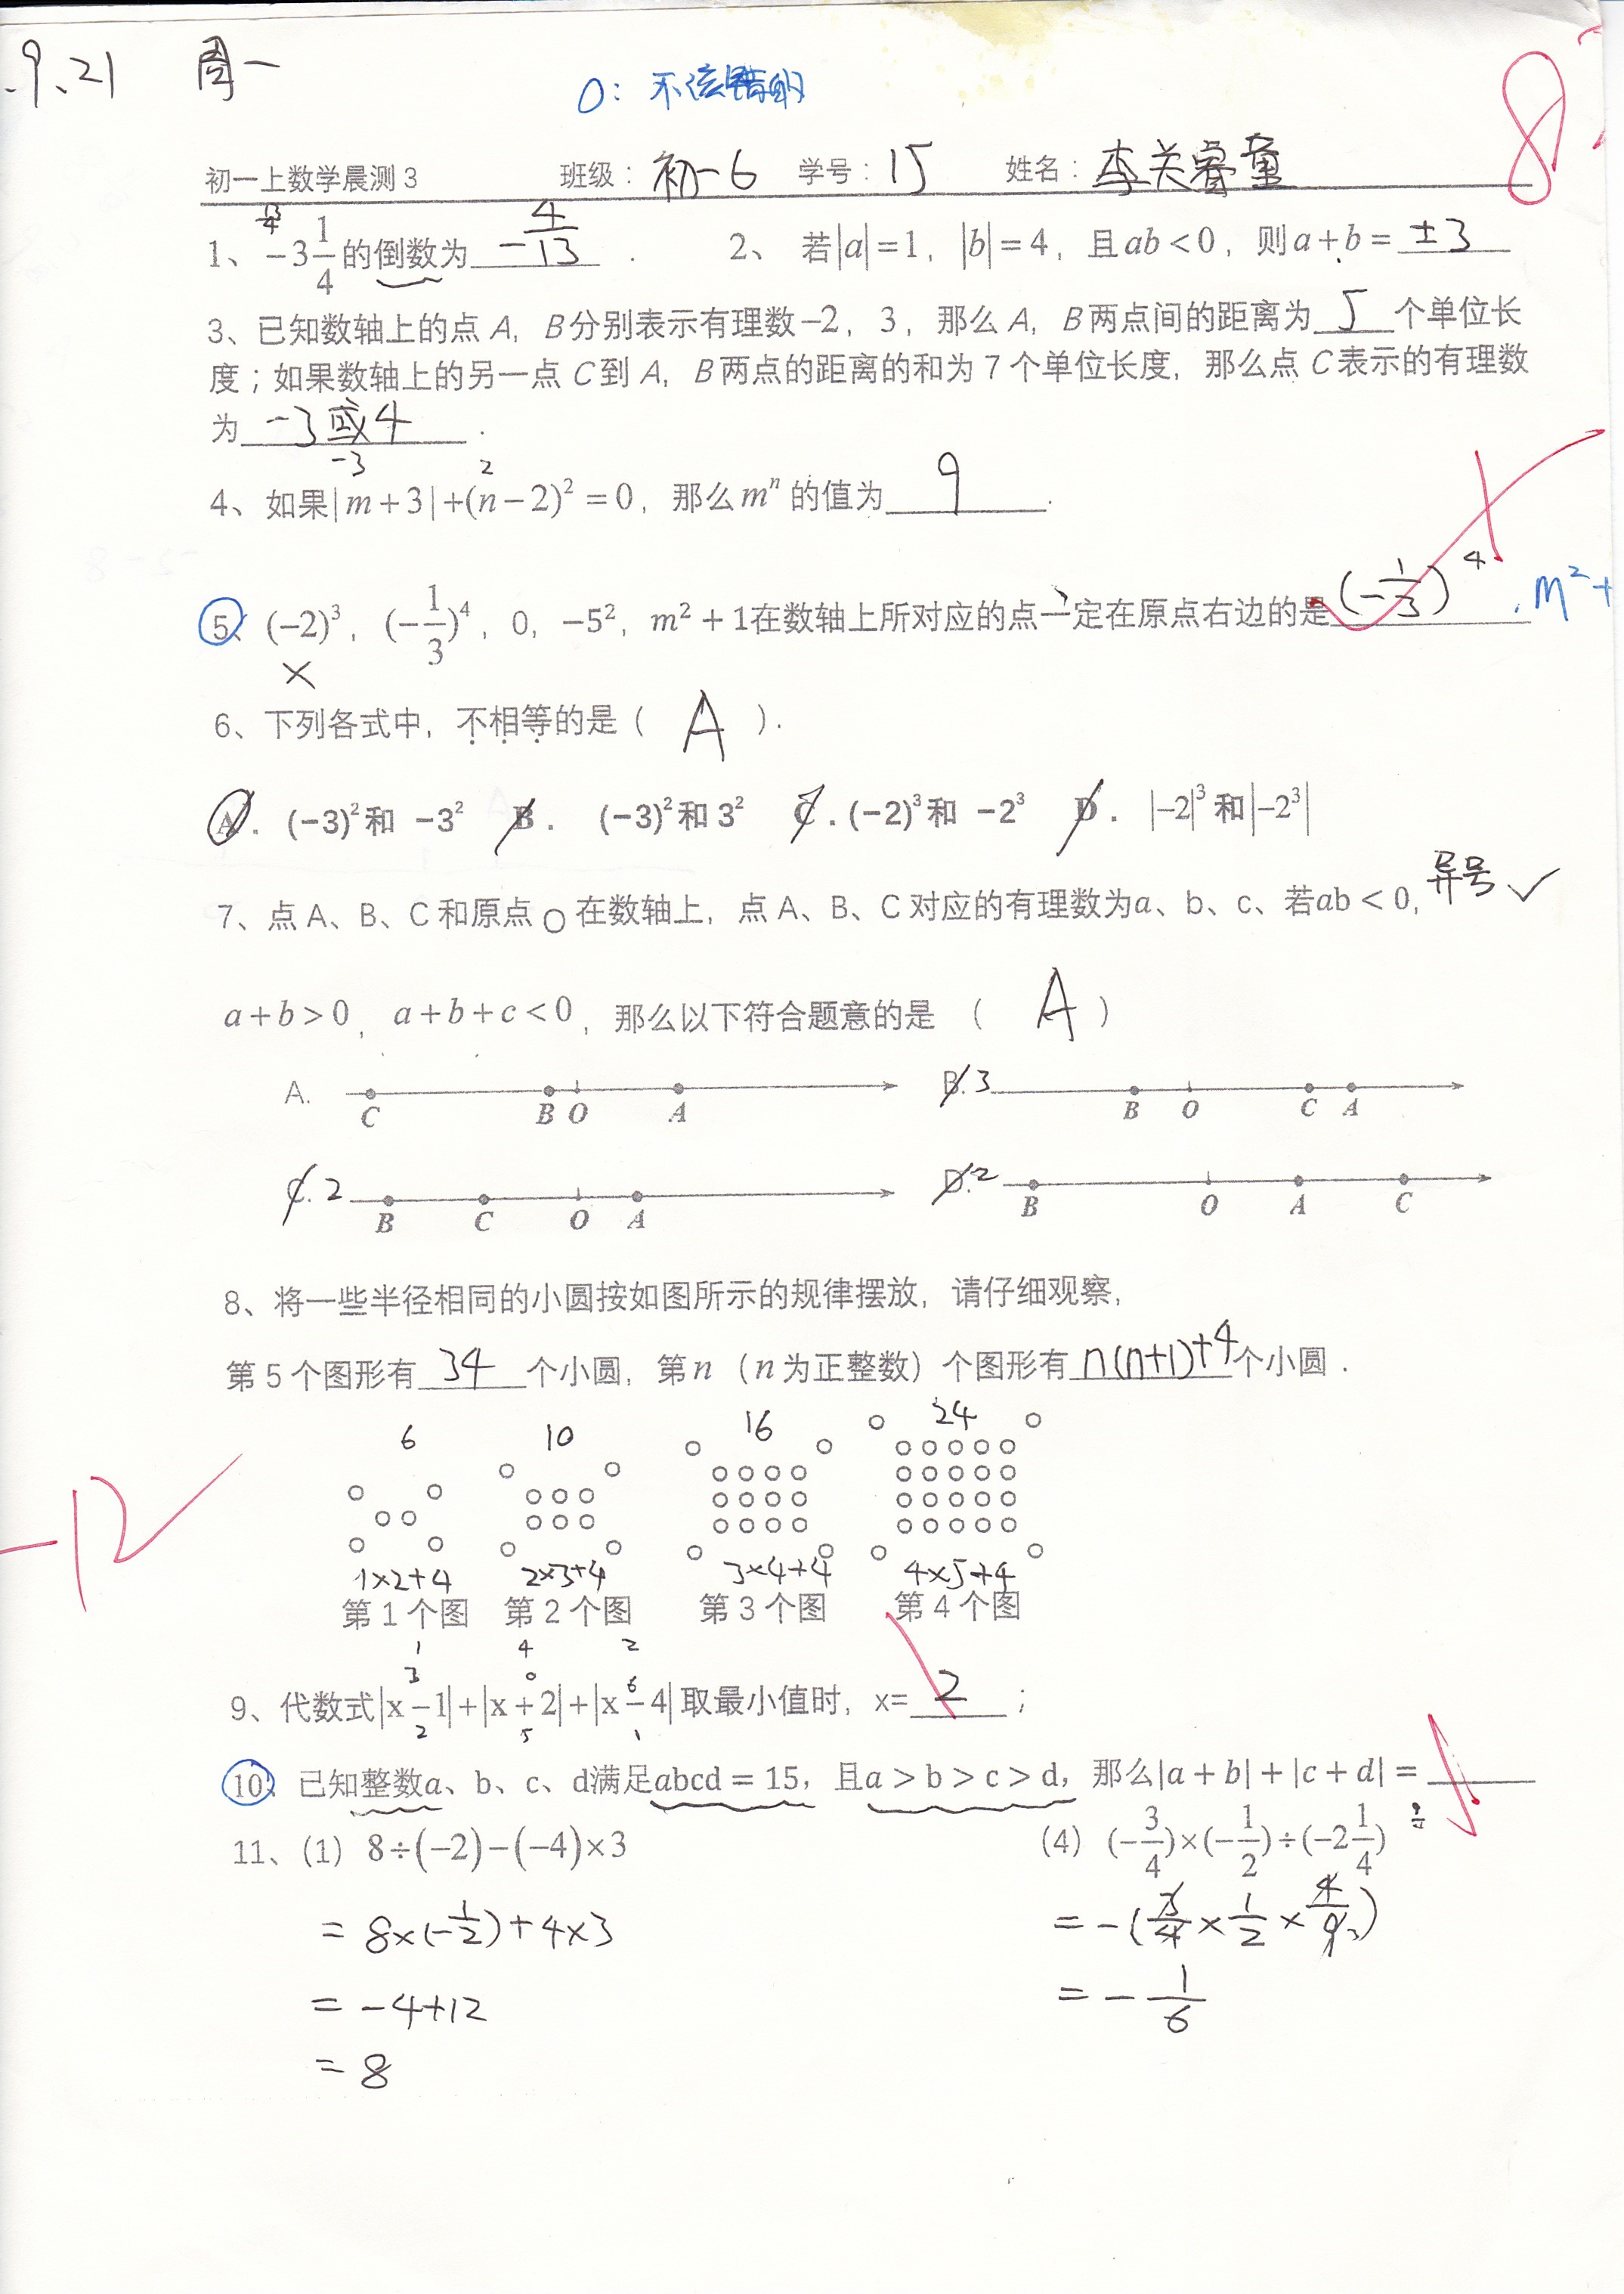 .9、21 周一
O：不该错的
8
初一上数学晨测 3 班级：初一6 学号：15 姓名：李关睿童
13/4
1、-3 1/4 的倒数为 -4/13 . 2、若|a|=1, |b|=4, 且ab<0, 则a+b= ±3
3、已知数轴上的点 A, B分别表示有理数-2, 3, 那么 A, B两点间的距离为 5 个单位长
度；如果数轴上的另一点 C到 A, B两点的距离的和为 7 个单位长度, 那么点 C表示的有理数
为 -3或4 .
-3 2
4、如果|m+3|+(n-2)²=0, 那么mⁿ的值为 9 .
5、(-2)³, (-1/3)⁴, 0, -5², m²+1在数轴上所对应的点一定在原点右边的是 (-1/3)⁴ , m²+
×
6、下列各式中, 不相等的是（ A ）.
A. (-3)²和 -3² B. (-3)²和 3² C. (-2)³和 -2³ D. |-2|³和|-2³|
7、点 A、B、C 和原点 O 在数轴上, 点 A、B、C 对应的有理数为a、b、c、若ab<0, 异号 ✓
a+b>0, a+b+c<0, 那么以下符合题意的是 （ A ）
A. C B O A B. 3 B O C A
C. 2 B C O A D. 2 B O A C
8、将一些半径相同的小圆按如图所示的规律摆放, 请仔细观察,
第 5 个图形有 34 个小圆, 第n（n为正整数）个图形有 n(n+1)+4 个小圆.
6 10 16 24
-12
1×2+4 2×3+4 3×4+4 4×5+4
第 1 个图 第 2 个图 第 3 个图 第 4 个图
1 4 2
3 0 6
9、代数式|x-1|+|x+2|+|x-4|取最小值时, x= 2 ；
2 5 1
10、已知整数a、b、c、d满足abcd=15, 且a>b>c>d, 那么|a+b|+|c+d|=
11、(1) 8÷(-2)-(-4)×3 (4) (-3/4)×(-1/2)÷(-2 1/4)
=8×(-1/2)+4×3 =-(3/4×1/2×4/9)
=-4+12 =-1/6
=8